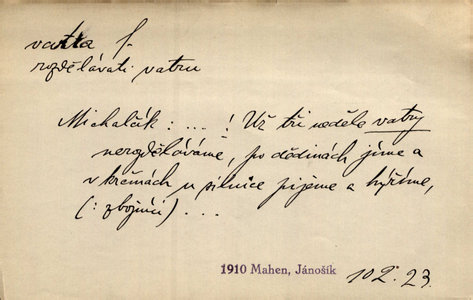 vatra f.
rozdělávati vatru
Michalčák: ....! Už tři neděle vatry
nerozděláváme, po dědinách jíme a
v krčmách u silnice pijeme a hýříme,
(: zbojníci) ...
1910 Mahen, Jánošík 102.23.